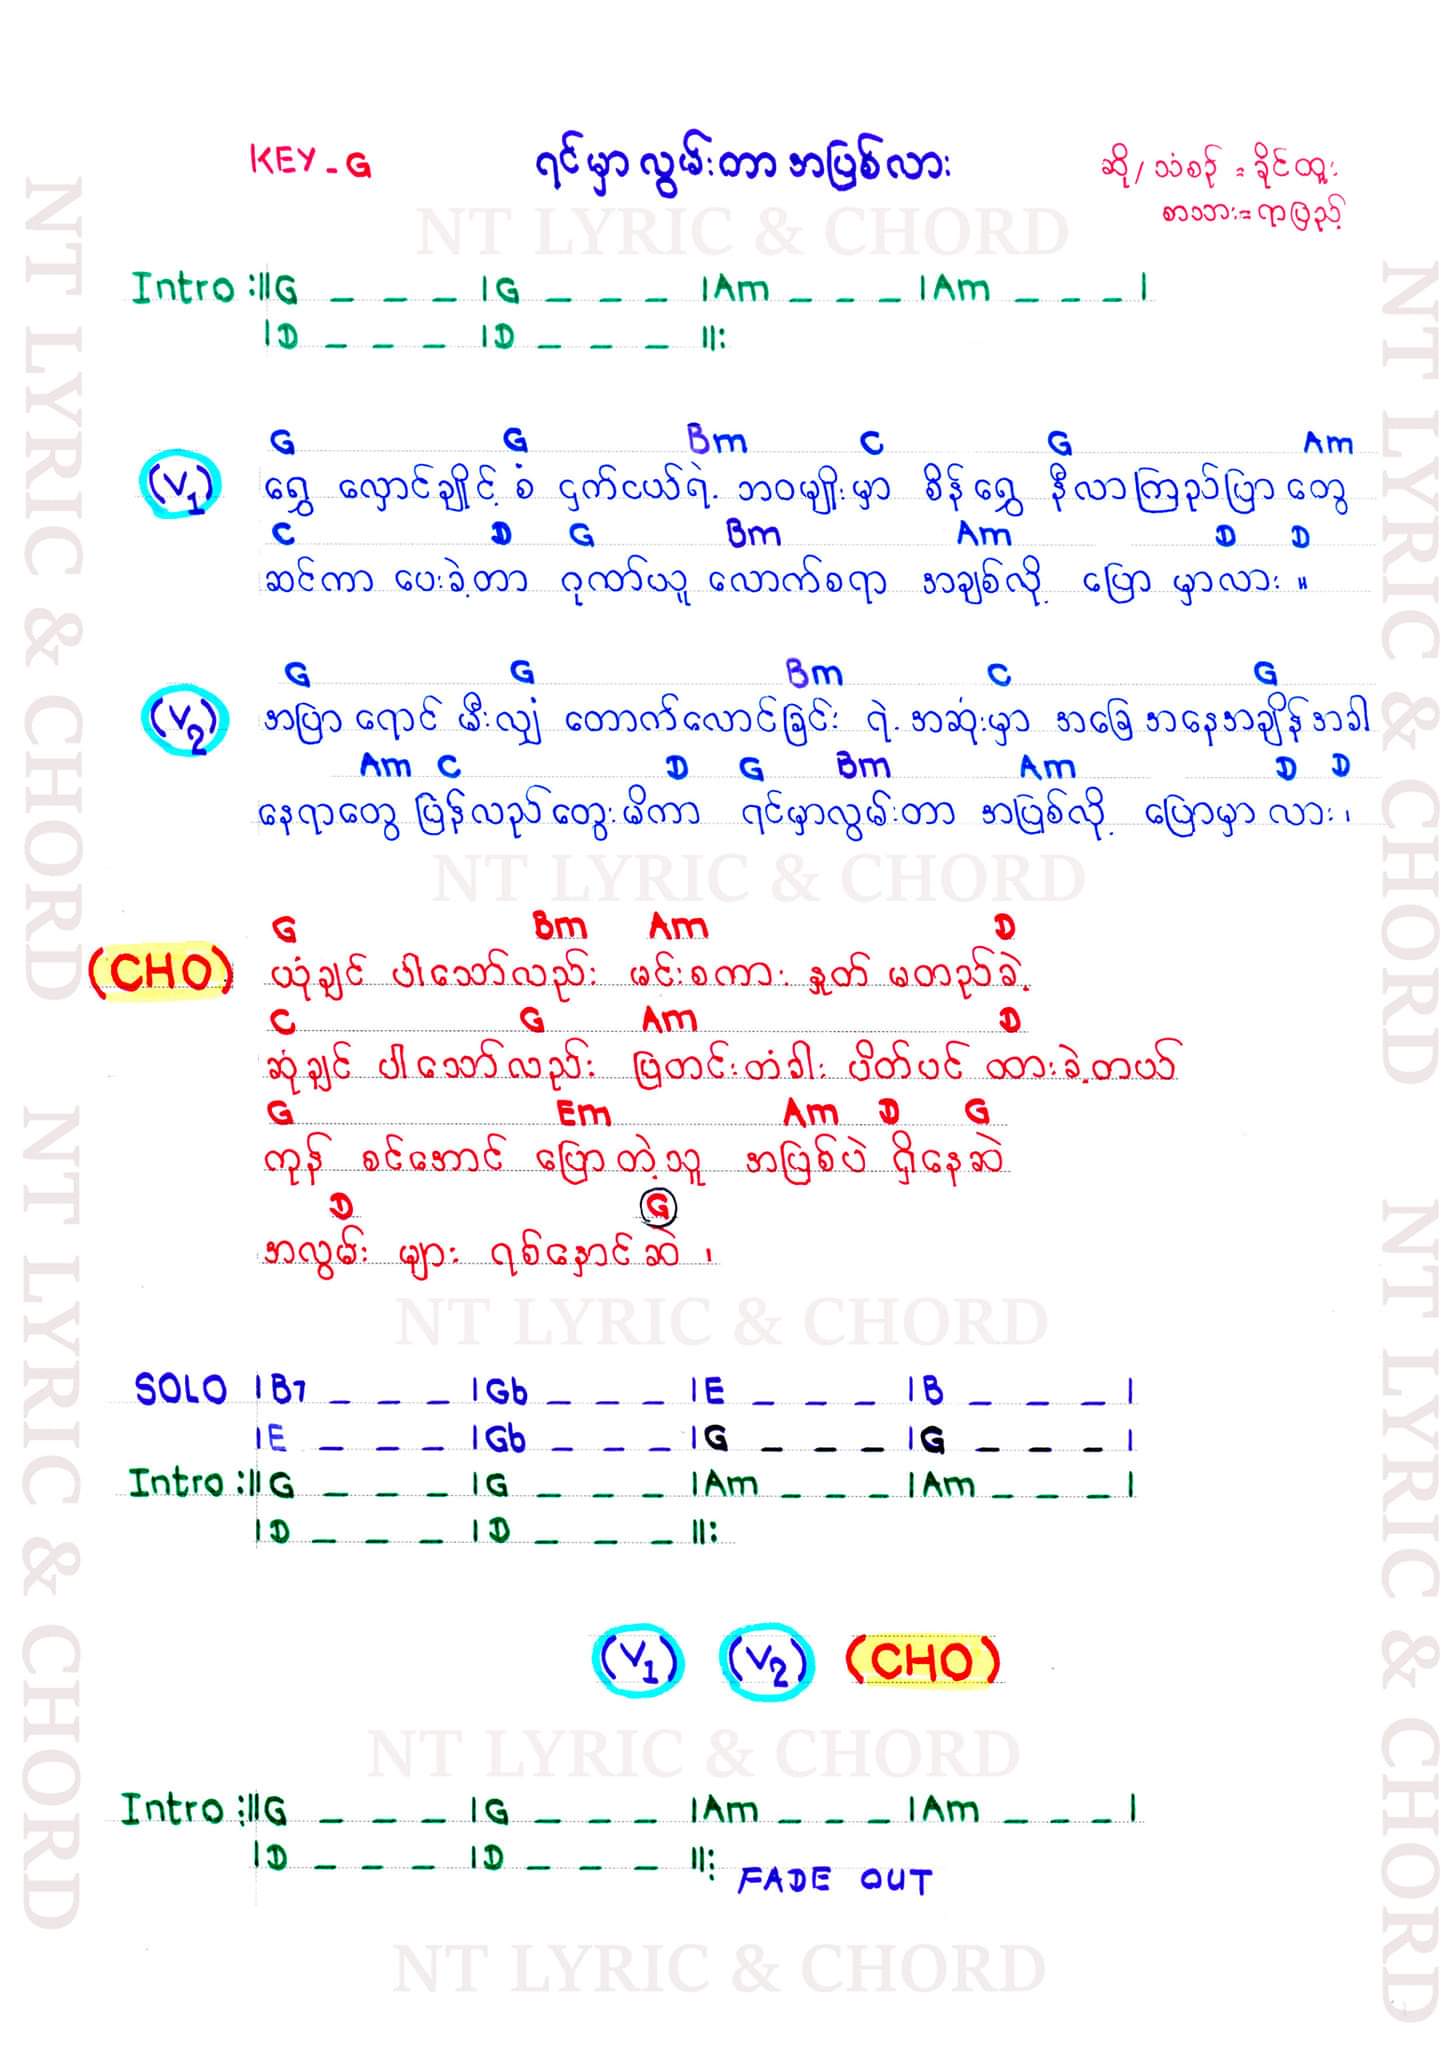 KEY - G
ရင်မှာလွမ်းတာအပြစ်လား
ဆို/သံစဉ် = ခိုင်ထူး
စာသား = ရာပြည့်
NT LYRIC & CHORD
Intro :||G _ _ _ |G _ _ _ |Am _ _ _ |Am _ _ _ |
|D _ _ _ |D _ _ _ ||:
G G Bm C G Am
(V1) ရွှေ လှောင်ချိုင့် စံ ငှက်ငယ်ရဲ့ ဘဝမျိုးမှာ စိန်ရွှေ နီလာကြည်ပြာ တွေ
C D G Bm Am D D
ဆင်ကာ ပေးခဲ့တာ ဂုဏ်ယူ လောက်စရာ အချစ်လို့ ပြော မှာလား ။
G G Bm C G
(V2) အပြာ ရောင် မီးလျှံ တောက်လောင်ခြင်း ရဲ့ အဆုံးမှာ အခြေ အနေအချိန်အခါ
Am C D G Bm Am D D
နေရာတွေ ပြန်လည်တွေးမိကာ ရင်မှာလွမ်းတာ အပြစ်လို့ ပြောမှာ လား ၊
NT LYRIC & CHORD
G Bm Am D
(CHO) ယုံချင် ပါသော်လည်း မင်းစကား နှုတ် မတည်ခဲ့
C G Am D
ဆုံချင် ပါသော်လည်း ပြတင်းတံခါး ပိတ်ပင် ထားခဲ့တယ်
G Em Am D G
ကုန် စင်အောင် ပြောတဲ့သူ အပြစ်ပဲ ရှိနေဆဲ
D G
အလွမ်း များ ရစ်နှောင်ဆဲ ၊
NT LYRIC & CHORD
SOLO |B7 _ _ _ |Gb _ _ _ |E _ _ _ |B _ _ _ |
|E _ _ _ |Gb _ _ _ |G _ _ _ |G _ _ _ |
Intro :||G _ _ _ |G _ _ _ |Am _ _ _ |Am _ _ _ |
|D _ _ _ |D _ _ _ ||:
(V1) (V2) (CHO)
NT LYRIC & CHORD
Intro :||G _ _ _ |G _ _ _ |Am _ _ _ |Am _ _ _ |
|D _ _ _ |D _ _ _ ||: FADE OUT
NT LYRIC & CHORD
NT LYRIC & CHORD
NT LYRIC & CHORD
NT LYRIC & CHORD
NT LYRIC & CHORD